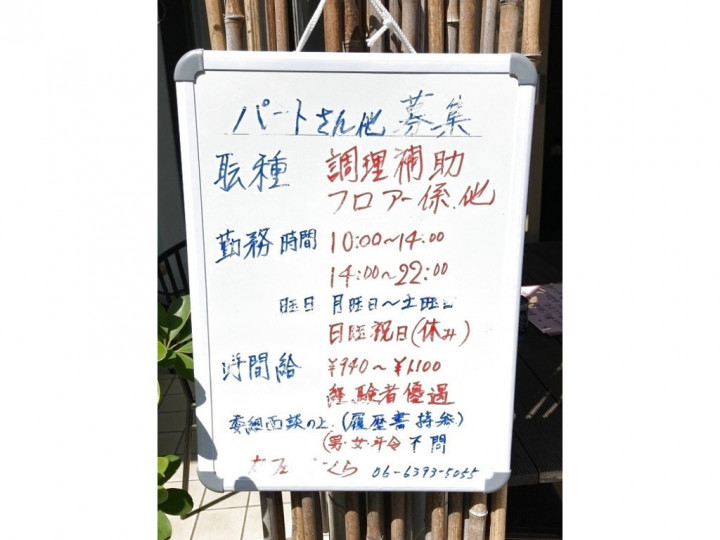 パートさん他 募集
職種 調理補助
フロアー係.他
勤務時間 10:00~14:00
14:00~22:00
曜日 月曜日~土曜日
日曜祝日(休み)
時間給 ¥940~¥1,100
経験者優遇
委細面談の上.(履歴書持参)
(男・女・年令不問
くら 06-6393-5055